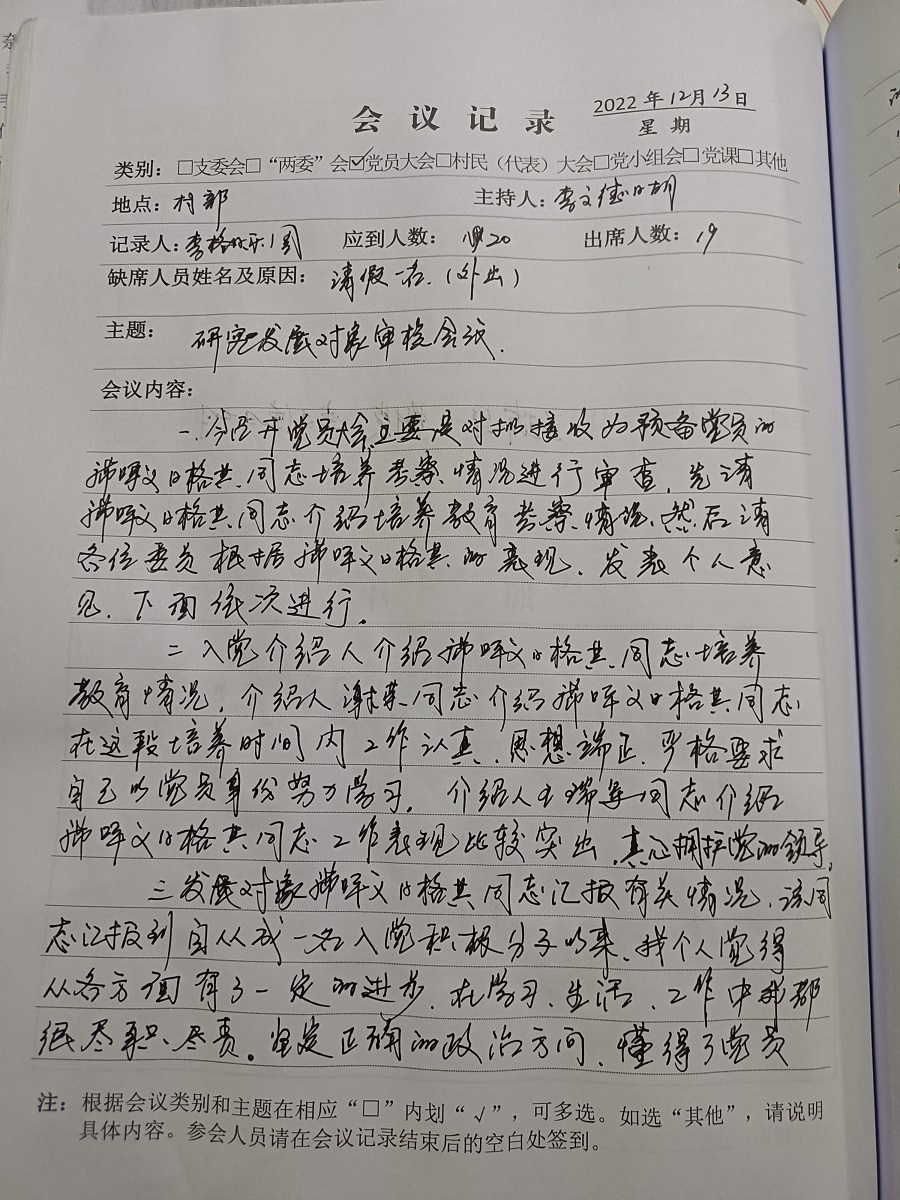 会议记录
2022年12月13日
星期
类别：□支委会□“两委”会☑党员大会□村民（代表）大会□党小组会□党课□其他
地点：村部 主持人：李文德
记录人：李格 应到人数：20 出席人数：19
缺席人员姓名及原因：请假一名.（外出）
主题：研究发展对象审核会议.
会议内容：
一.今召开党员大会,主要是对拟接收为预备党员的
格其同志培养考察情况进行审查，先请
格其同志介绍培养教育考察情况、然后请
各位委员根据 格其的表现、发表个人意
见.下面依次进行。
二 入党介绍人介绍 格其同志培养
教育情况，介绍人谢 同志介绍 格其同志
在这段培养时间内工作认真、思想端正、严格要求
自己以党员身份努力学习。介绍人王瑞 同志介绍
格其同志工作表现比较突出，真心拥护党的领导。
三发展对象 格其同志汇报有关情况、该同
志汇报到自从成一名入党积极分子以来、我个人觉得
从各方面有了一定的进步、在学习、生活、工作中我都
很尽职、尽责。坚定正确的政治方向、懂得了党员
注：根据会议类别和主题在相应“□”内划“√”，可多选。如选“其他”，请说明
具体内容。参会人员请在会议记录结束后的空白处签到。